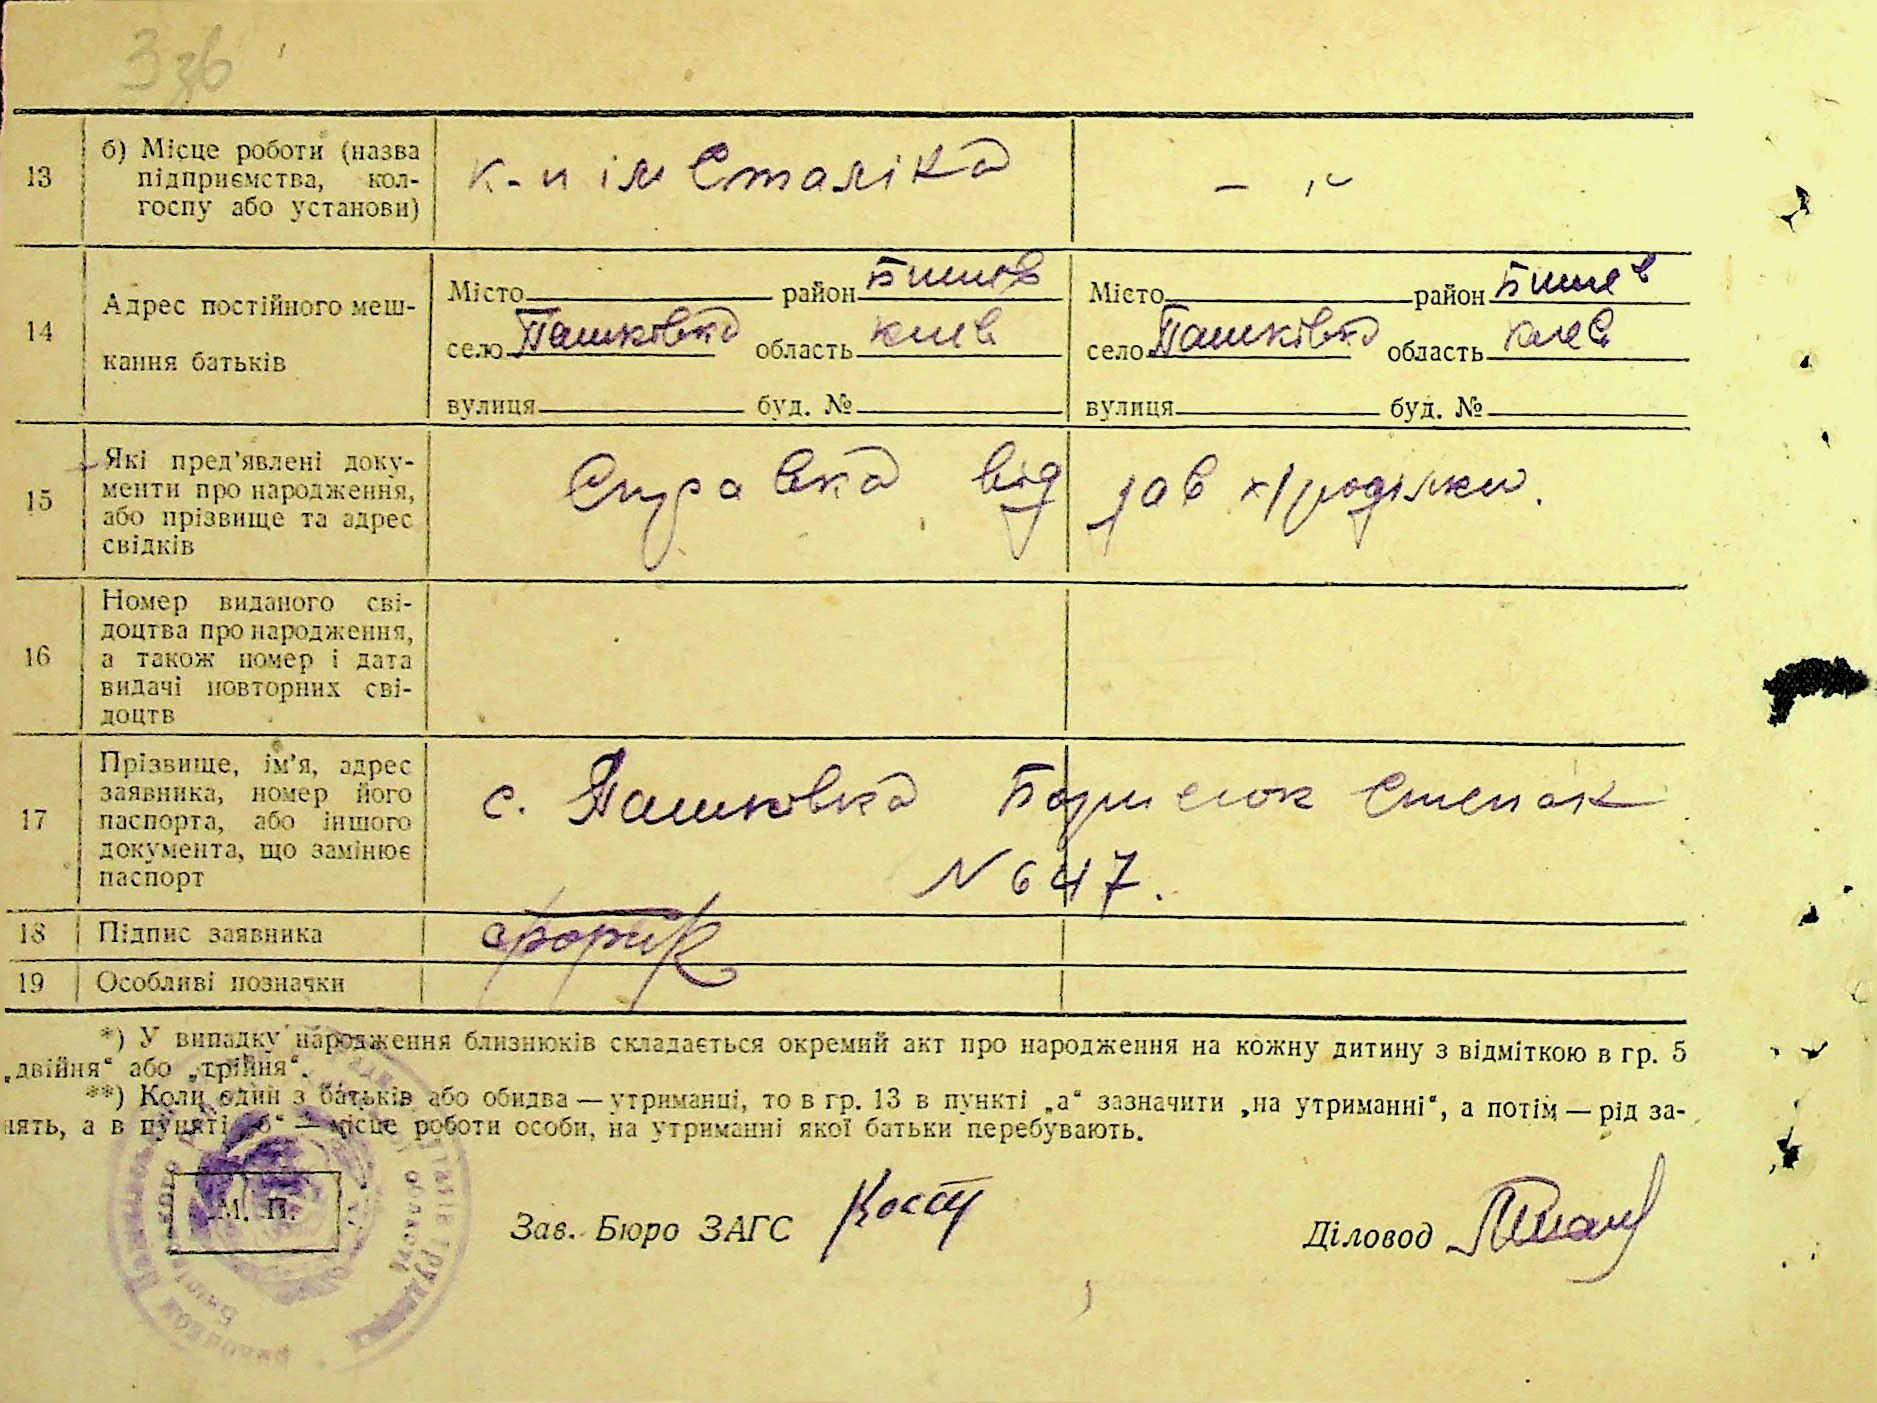 3 зв
13 б) Місце роботи (назва підприємства, кол-
госпу або установи)
к-п ім Сталіна
— „ —
14 Адрес постійного меш-
кання батьків
Місто район Бишев
село Пашковка область Київ
вулиця буд. №
Місто район Бишев
село Пашківка область Київ
вулиця буд. №
15 Які пред'явлені доку-
менти про народження,
або прізвище та адрес
свідків
Справка від зав х/роділки.
16 Номер виданого сві-
доцтва про народження,
а також номер і дата
видачі повторних сві-
доцтв
17 Прізвище, ім'я, адрес
заявника, номер його
паспорта, або іншого
документа, що замінює
паспорт
с. Пашковка Степан
N 647.
18 Підпис заявника
19 Особливі позначки
*) У випадку народження близнюків складається окремий акт про народження на кожну дитину з відміткою в гр. 5
„двійня“ або „трійня“.
**) Коли один з батьків або обидва — утриманці, то в гр. 13 в пункті „а“ зазначити „на утриманні“, а потім — рід за-
нять, а в пункті „б“ — місце роботи особи, на утриманні якої батьки перебувають.
М. П.
Зав. Бюро ЗАГС
Діловод